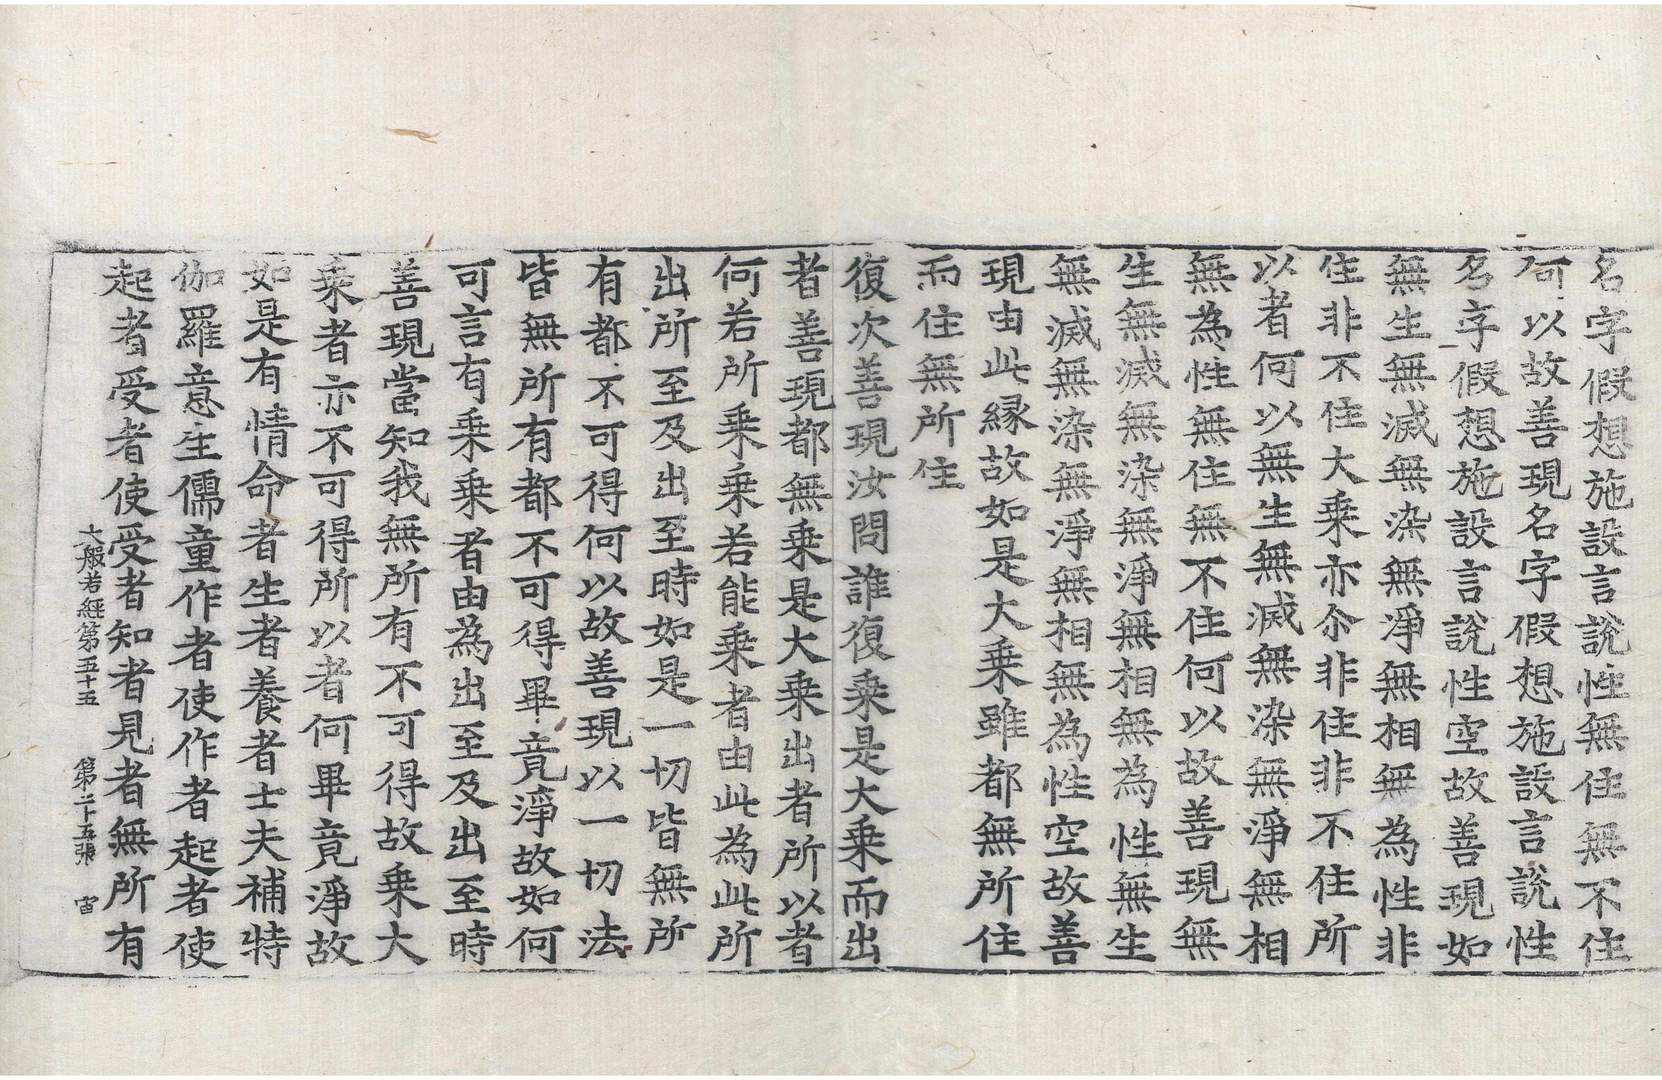 名字假想施設言說性無住無不住
何以故善現名字假想施設言說性
名字假想施設言說性空故善現如
無生無滅無染無淨無相無為性非
住非不住大乗亦尒非住非不住所
以者何以無生無滅無染無淨無相
無為性無住無不住何以故善現無
生無滅無染無淨無相無為性無生
無滅無染無淨無相無為性空故善
現由此縁故如是大乗雖都無所住
而住無所住
復次善現汝問誰復乗是大乗而出
者善現都無乗是大乗出者所以者
何若所乗乗若能乗者由此為此所
出所至及出至時如是一切皆無所
有都不可得何以故善現以一切法
皆無所有都不可得畢竟淨故如何
可言有乗乗者由為出至及出至時
善現當知我無所有不可得故乗大
乗者亦不可得所以者何畢竟淨故
如是有情命者生者養者士夫補特
伽羅意生儒童作者使作者起者使
起者受者使受者知者見者無所有
大般若經第五十五 第二十五張 宙